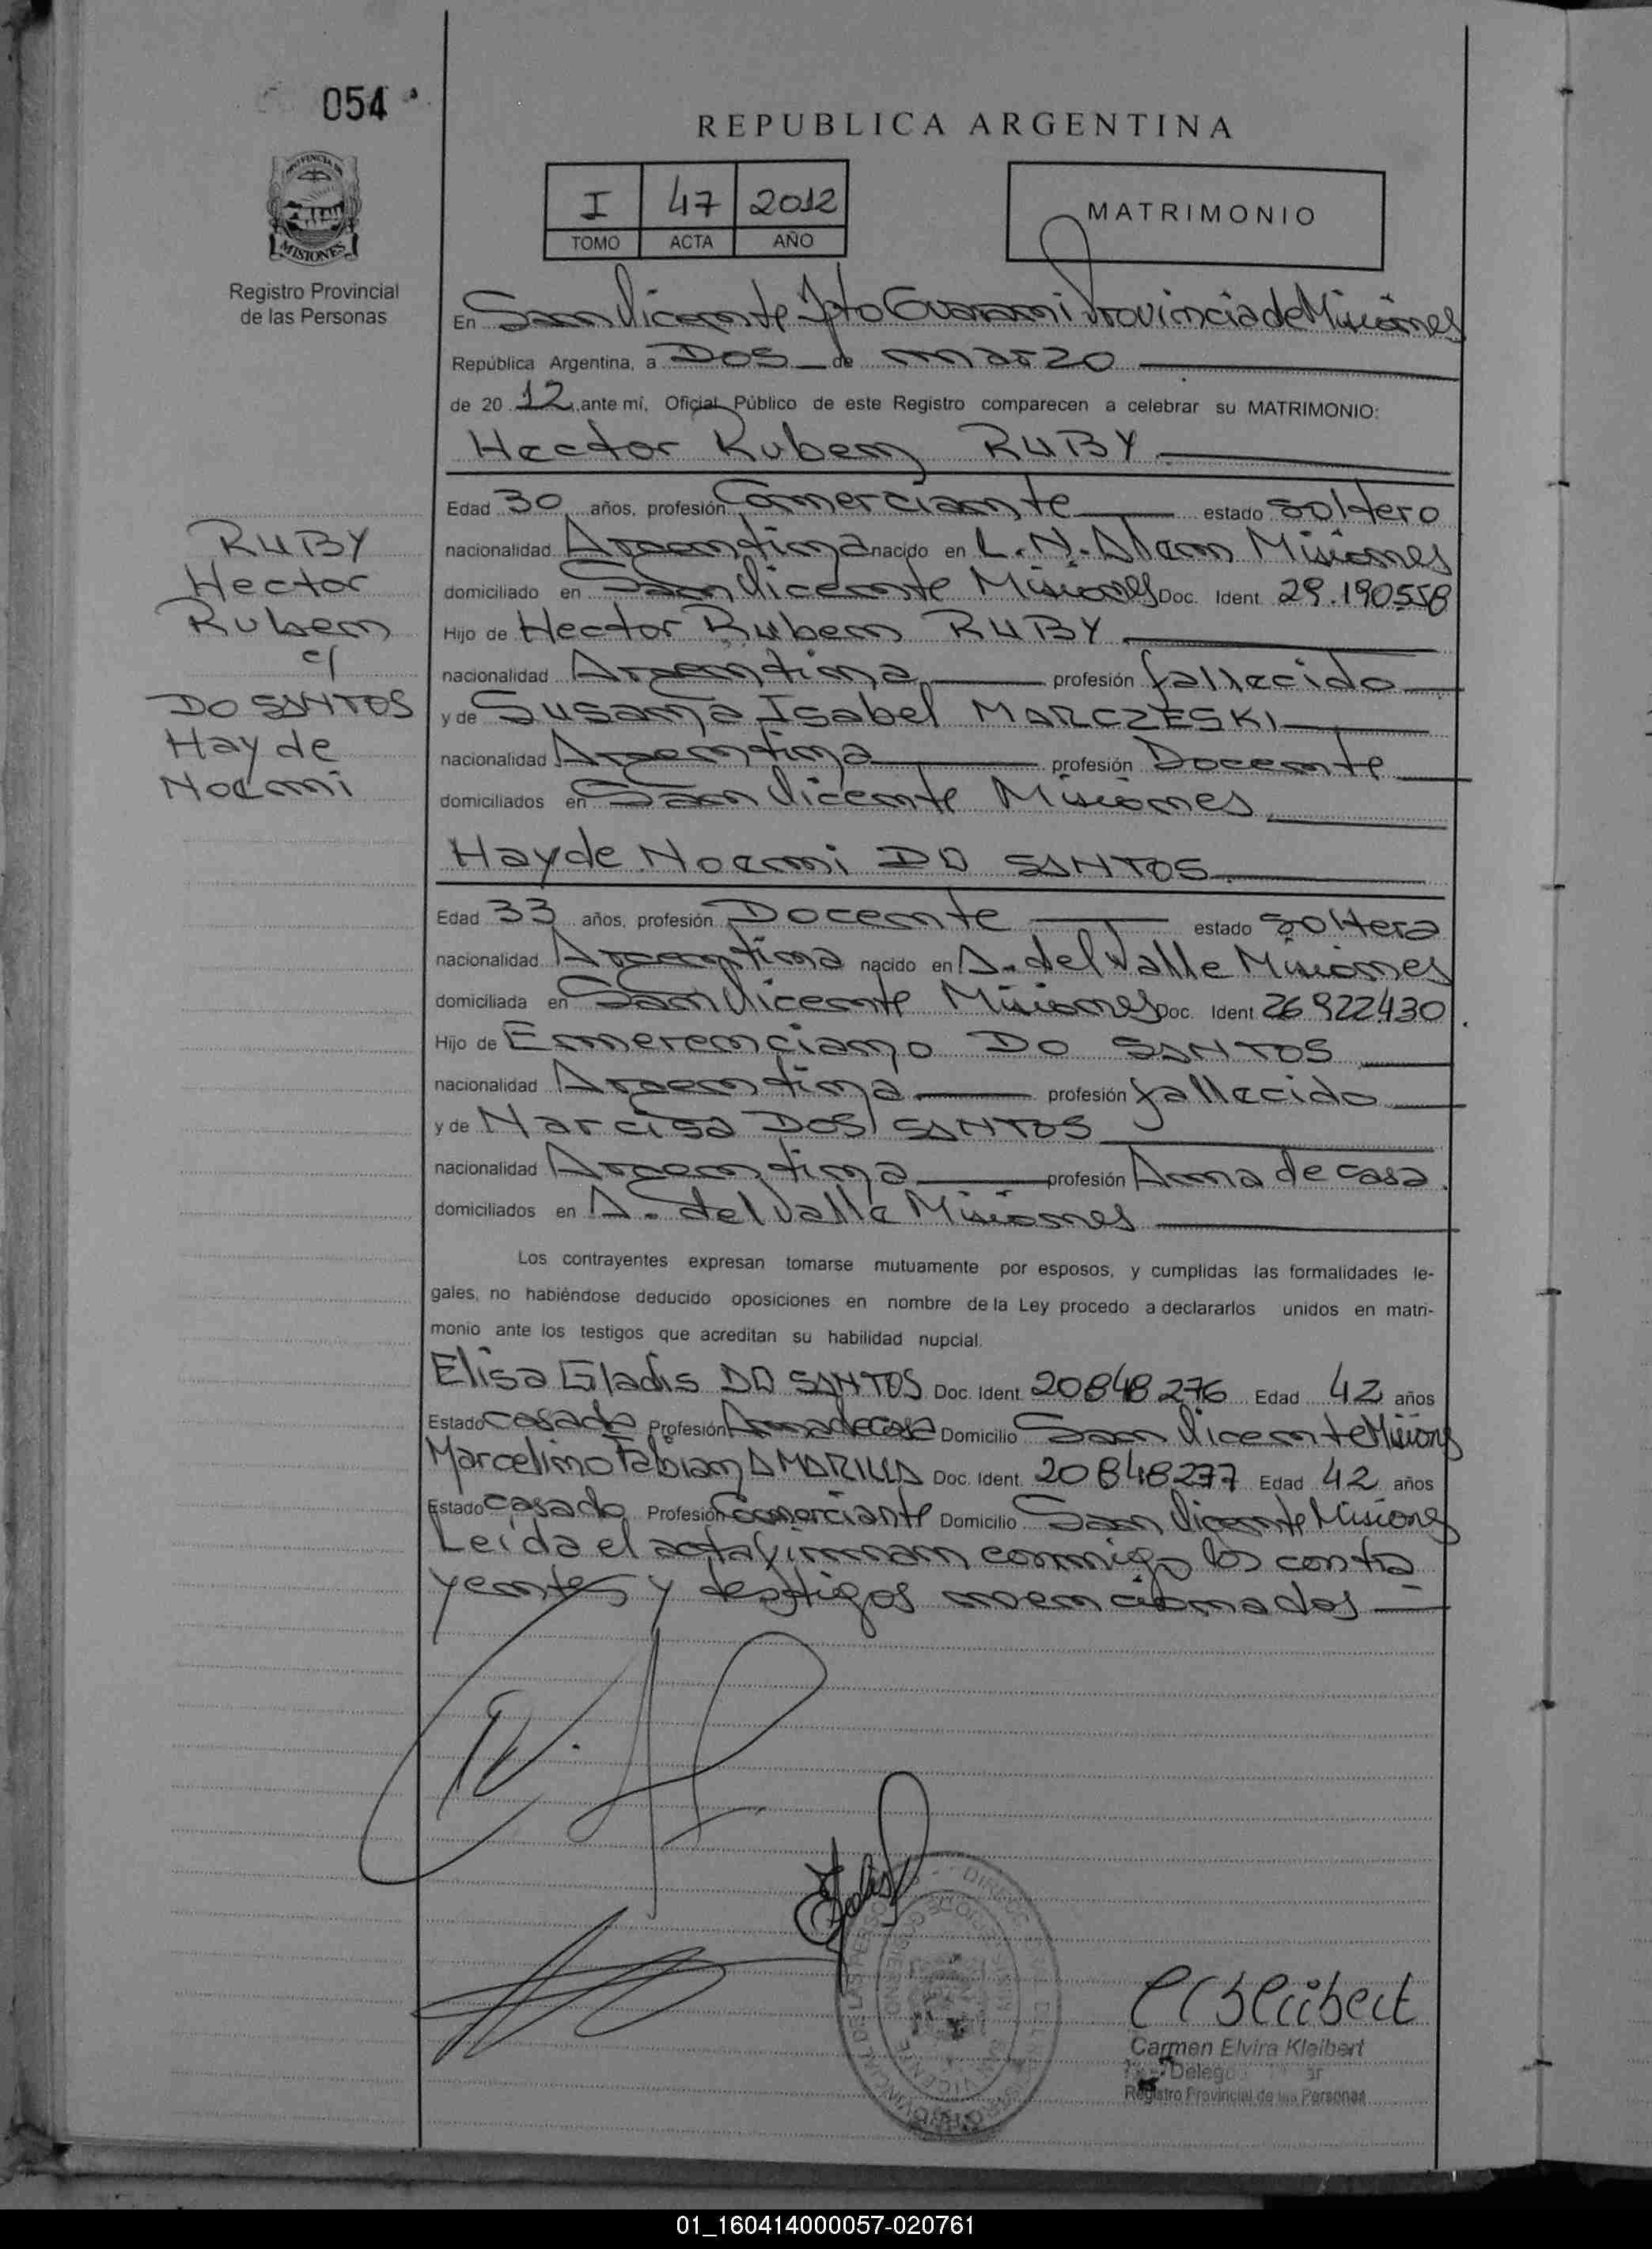 054
REPUBLICA ARGENTINA
I 47 2012
TOMO ACTA AÑO
MATRIMONIO
MISIONES
Registro Provincial
de las Personas
En San Vicente Dpto Guarani Provincia de Misiones
República Argentina, a Dos de marzo
de 20 12 ante mí, Oficial Público de este Registro comparecen a celebrar su MATRIMONIO:
Hector Ruben RUBY
Edad 30 años, profesión Comerciante estado soltero
nacionalidad Argentina nacido en L.N. Alem Misiones
domiciliado en San Vicente Misiones Doc. Ident. 29.190558
Hijo de Hector Ruben RUBY
nacionalidad Argentina profesión fallecido
y de Susana Isabel MARCZESKI
nacionalidad Argentina profesión Docente
domiciliados en San Vicente Misiones
RUBY
Hector
Ruben
c/
DO SANTOS
Hayde
Noemi
Hayde Noemi DO SANTOS
Edad 33 años, profesión Docente estado soltera
nacionalidad Argentina nacido en A. del Valle Misiones
domiciliada en San Vicente Misiones Doc. Ident 26 922430
Hijo de Emerenciano DO SANTOS
nacionalidad Argentina profesión fallecido
y de Narcisa DOS SANTOS
nacionalidad Argentina profesión Ama de casa
domiciliados en A. del Valle Misiones
Los contrayentes expresan tomarse mutuamente por esposos, y cumplidas las formalidades le-
gales, no habiéndose deducido oposiciones en nombre de la Ley procedo a declararlos unidos en matri-
monio ante los testigos que acreditan su habilidad nupcial.
Elisa Gladis DO SANTOS Doc. Ident. 20848276 Edad 42 años
Estado casada Profesión Ama de casa Domicilio San Vicente Misiones
Marcelino Fabian AMARILLA Doc. Ident. 20848277 Edad 42 años
Estado casado Profesión Comerciante Domicilio San Vicente Misiones
Leída el acta firman conmigo los contra
yentes y testigos mencionados
Carmen Elvira Kleibert
Registro Provincial de las Personas
01_160414000057-020761